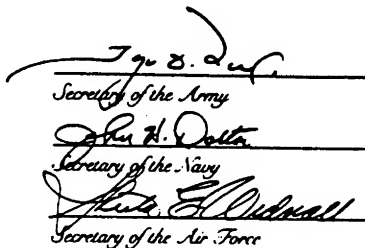 Secretary of the Army
John H. Dalton
Secretary of the Navy
Sheila E. Widnall
Secretary of the Air Force